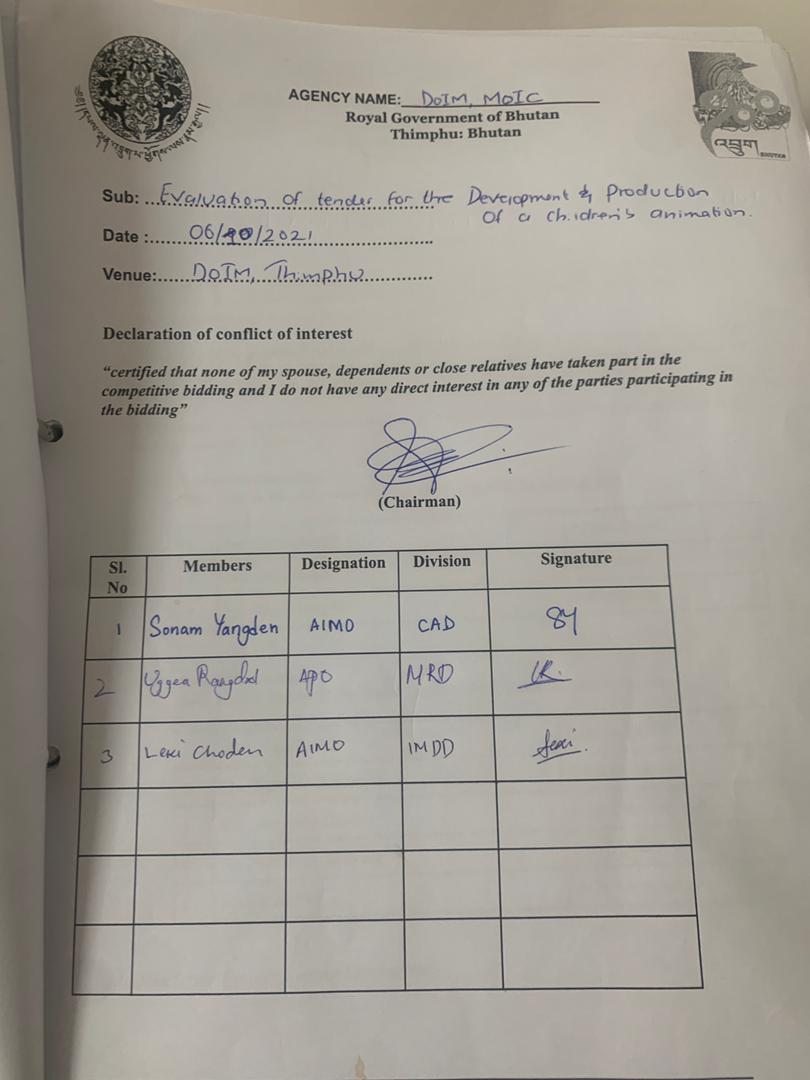 AGENCY NAME: DOIM, MOIC
Royal Government of Bhutan
Thimphu: Bhutan
འབྲུག
BHUTAN
Sub: Evaluation of tender for the Development & Production
Of a children's animation.
Date : 06/10/2021
Venue: DOIM, Thimphu
Declaration of conflict of interest
“certified that none of my spouse, dependents or close relatives have taken part in the
competitive bidding and I do not have any direct interest in any of the parties participating in
the bidding”
(Chairman)
Sl. No Members Designation Division Signature
1 Sonam Yangden AIMO CAD SY
2 Uggen Rangdrel APO MRD UR.
3 Leki Choden AIMO IMDD Leki.